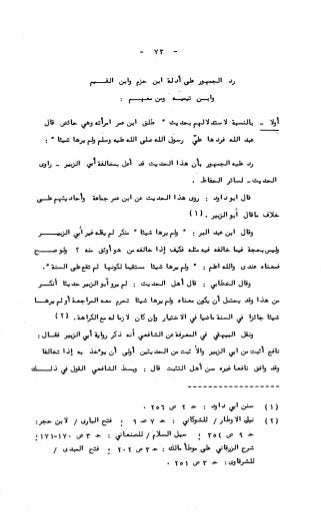 - ٧٣ -
رد الجمهور على أدلة ابن حزم وابن القيم
وابن تيميه ومن معهم :
أولا - بالنسبة لاستدلالهم بحديث " طلق ابن عمر امرأته وهي حائض قال
عبد الله فردها عليّ رسول الله صلى الله عليه وسلم ولم يرها شيئا " :
رد عليه الجمهور بأن هذا الحديث قد أعل بمخالفة أبي الزبير - راوى
الحديث - لسائر الحفاظ .
قال ابو داود : روى هذا الحديث عن ابن عمر جماعة وأحاديثهم على
خلاف ماقال أبو الزبير . (١)
وقال ابن عبد البر : " ولم يرها شيئا " منكر لم يقله غير أبي الزبير
وليس بحجة فيما خالفه فيه مثله فكيف إذا خالفه من هو أوثق منه ؟ ولو صح
فمعناه عندى والله اعلم : " ولم يرها شيئا مستقيما لكونها لم تقع على السنة".
وقال الخطابي : قال أهل الحديث : لم يرو أبو الزبير حديثا أنكر
من هذا وقد يحتمل أن يكون معناه ولم يرها شيئا تحرم معه المراجعة أو لم يرها
شيئا جائزا في السنة ماضيا في الاختيار وإن كان لازما له مع الكراهة . (٢)
ونقل البيهقي في المعرفة عن الشافعي أنه ذكر رواية أبي الزبير فقال :
نافع أثبت من ابي الزبير والأثبت من الحديثين أولى أن يؤخذ به إذا تخالفا
وقد وافق نافعا غيره من أهل الثبت قال : وبسط الشافعي القول في ذلك
(١) سنن أبي داود : حـ ٢ ص ٢٥٦ .
(٢) نيل الاوطار / للشوكاني : حـ ٧ ص ٩ ؛ فتح البارى / لابن حجر:
حـ ٩ ص ٣٥٤ ؛ سبل السلام / للصنعاني : حـ ٣ ص ١٧٠-١٧١؛
شرح الزرقاني على موطأ مالك : حـ ٣ ص ٢٠٢ ؛ فتح المبدى /
للشرقاوى : حـ ٣ ص ٢٥١ .